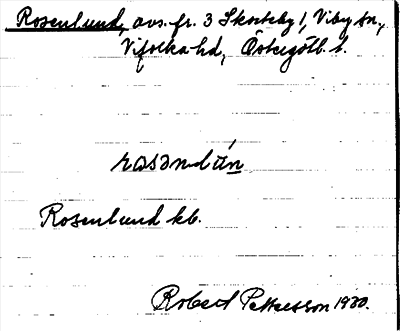 Rosenlund, avs. fr. 3 Skorteby 1, Viby sn,
Vifolka hd, Östergötl. l.
rasəndún
Rosenlund kb.
Robert Pettersson 1930.